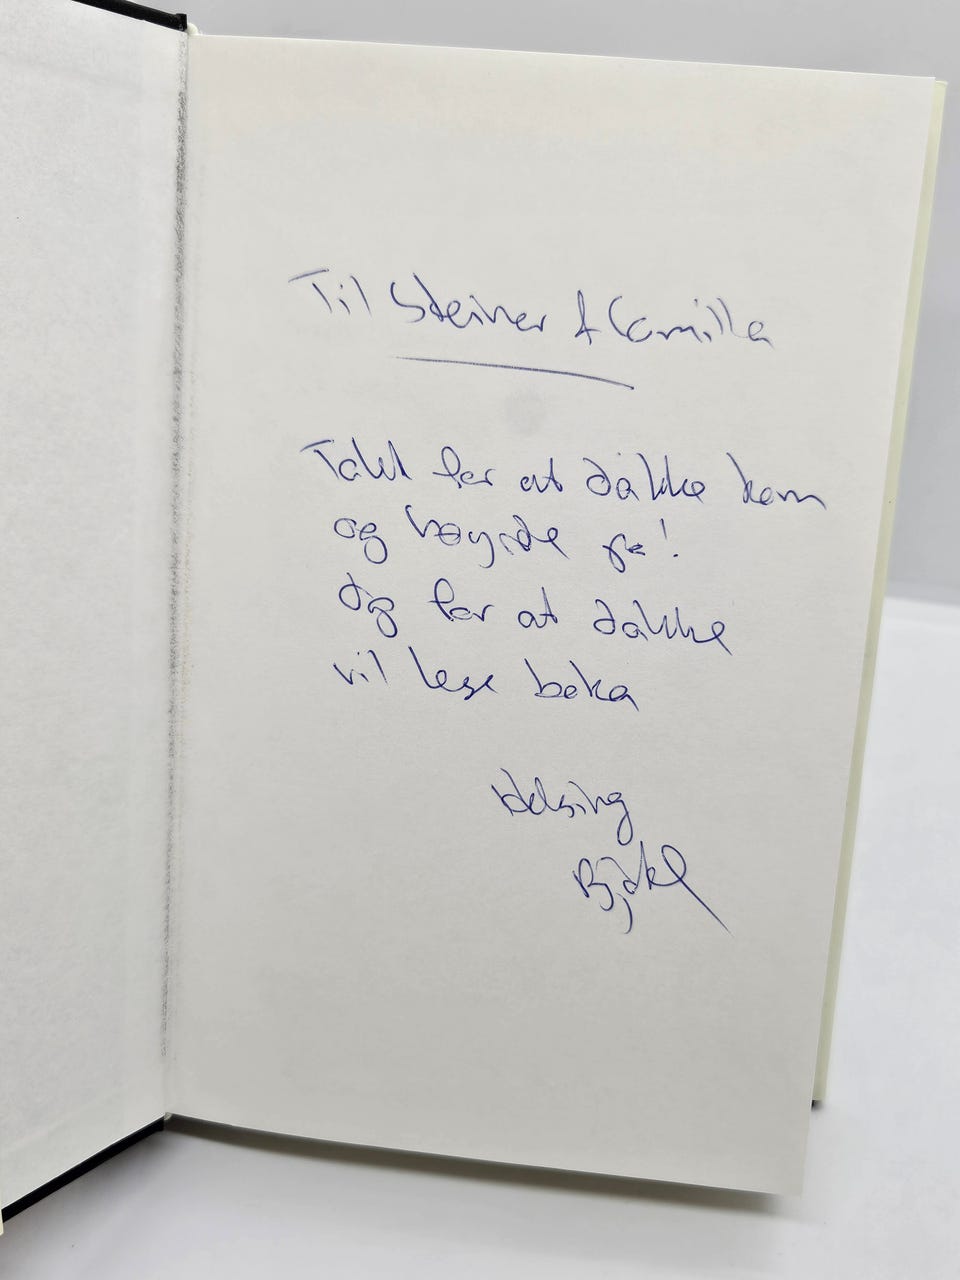 Til Steinar & Camilla
Takk for at dåkke kom
og høyrde på!
Og for at dåkke
vil lese boka
Helsing